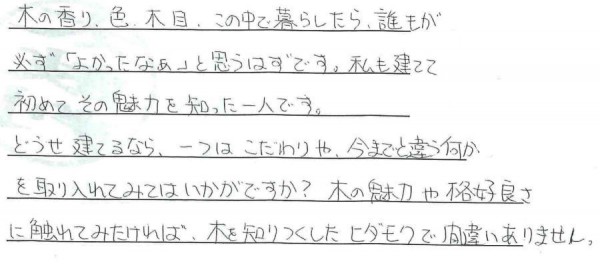 木の香り、色、木目、この中で暮らしたら、誰もが
必ず「よかったなぁ」と思うはずです。私も建てて
初めてその魅力を知った一人です。
どうせ建てるなら、一つはこだわりや、今までと違う何か
を取り入れてみてはいかがですか？木の魅力や格好良さ
に触れてみたければ、木を知りつくしたヒダモクで間違いありません。